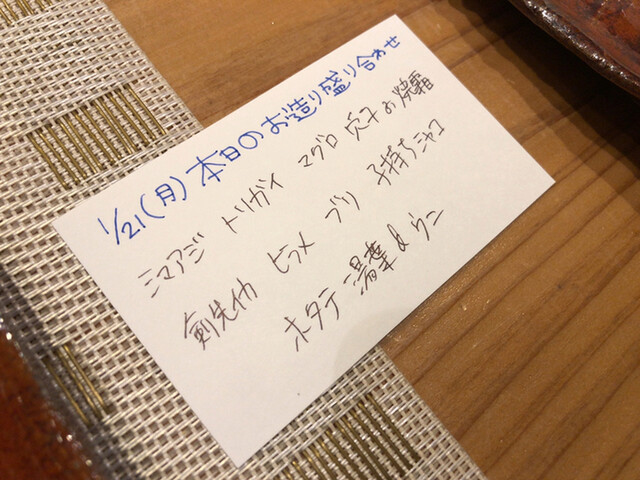 1/21(月) 本日のお造り盛り合わせ
シマアジ トリガイ マグロ 穴子の焼霜
剣先イカ ヒラメ ブリ 子持ちシャコ
ホタテ 湯葉&ウニ